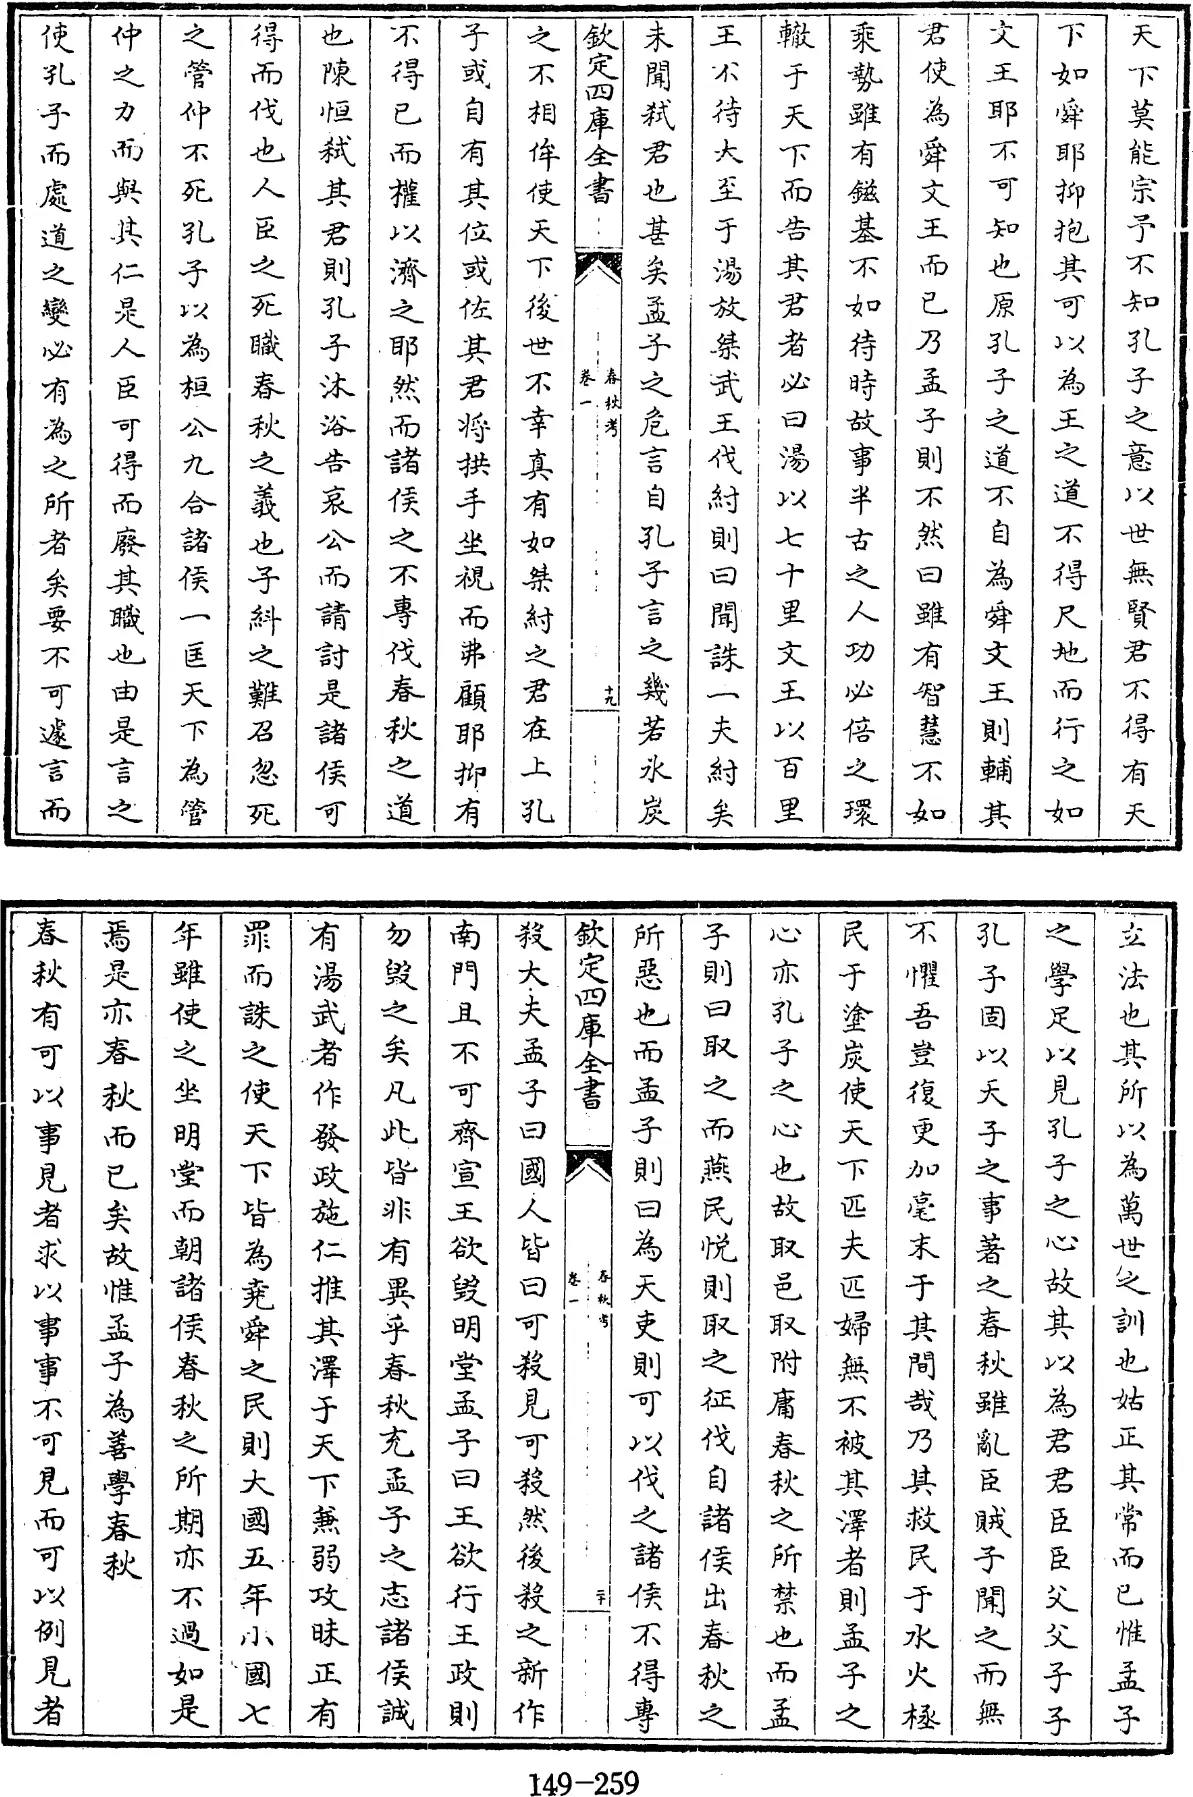 天下莫能宗予不知孔子之意以世無賢君不得有天
下如舜耶抑抱其可以為王之道不得尺地而行之如
文王耶不可知也原孔子之道不自為舜文王則輔其
君使為舜文王而已乃孟子則不然曰雖有智慧不如
乘勢雖有鎡基不如待時故事半古之人功必倍之環
轍于天下而告其君者必曰湯以七十里文王以百里
王不待大至于湯放桀武王伐紂則曰聞誅一夫紂矣
未聞弒君也甚矣孟子之危言自孔子言之幾若氷炭
欽定四庫全書
春秋考
卷一
十九
之不相侔使天下後世不幸真有如桀紂之君在上孔
子或自有其位或佐其君將拱手坐視而弗顧耶抑有
不得已而權以濟之耶然而諸侯之不專伐春秋之道
也陳恒弒其君則孔子沐浴告哀公而請討是諸侯可
得而伐也人臣之死職春秋之義也子糾之難召忽死
之管仲不死孔子以為桓公九合諸侯一匡天下為管
仲之力而與其仁是人臣可得而廢其職也由是言之
使孔子而處道之變必有為之所者矣要不可遽言而
立法也其所以為萬世之訓也姑正其常而已惟孟子
之學足以見孔子之心故其以為君君臣臣父父子子
孔子固以天子之事著之春秋雖亂臣賊子聞之而無
不懼吾豈復更加毫末于其間哉乃其救民于水火極
民于塗炭使天下匹夫匹婦無不被其澤者則孟子之
心亦孔子之心也故取邑取附庸春秋之所禁也而孟
子則曰取之而燕民悅則取之征伐自諸侯出春秋之
所惡也而孟子則曰為天吏則可以伐之諸侯不得專
欽定四庫全書
春秋考
卷一
二十
殺大夫孟子曰國人皆曰可殺見可殺然後殺之新作
南門且不可齊宣王欲毀明堂孟子曰王欲行王政則
勿毀之矣凡此皆非有異乎春秋充孟子之志諸侯誠
有湯武者作發政施仁推其澤于天下兼弱攻昧正有
罪而誅之使天下皆為堯舜之民則大國五年小國七
年雖使之坐明堂而朝諸侯春秋之所期亦不過如是
焉是亦春秋而已矣故惟孟子為善學春秋
春秋有可以事見者求以事事不可見而可以例見者
149-259